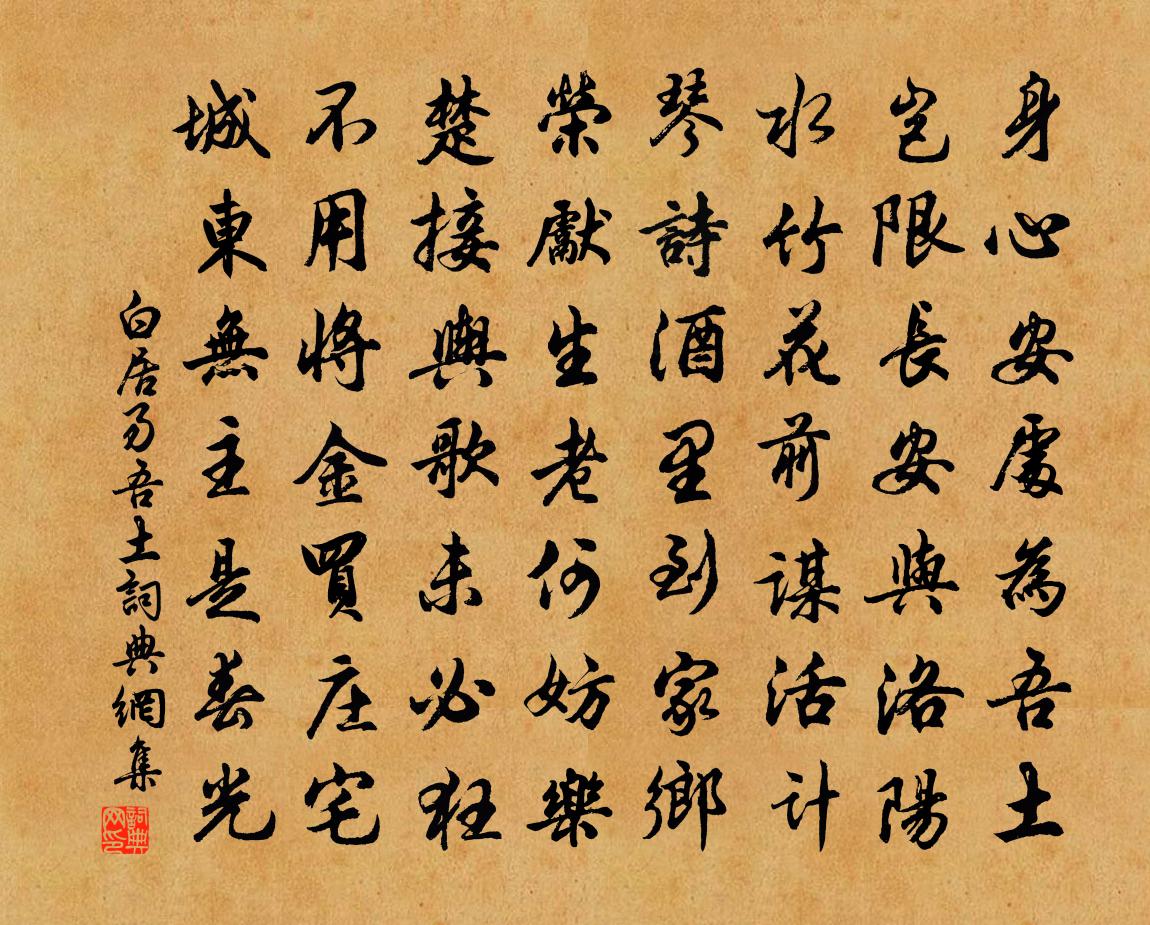 身心安處為吾土
岂限長安與洛陽
水竹花前謀活计
琴詩酒里到家鄉
榮獻生老何妨樂
楚接輿歌未必狂
不用将金買庄宅
城東無主是春光
白居易吾土詞典網集
詞典网印